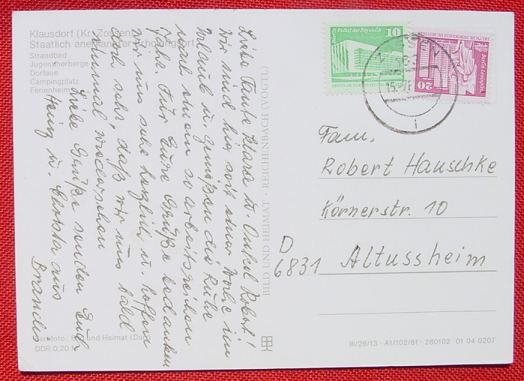 Klausdorf (Kr. Zossen)
Staatlich anerkannter Erholungsort
Strandbad
Jugendherberge
Dorfaue
Campingplatz
Ferienheim
Liebe Tante Klara u. Onkel Robert!
Wir sind hier seit einer Woche im
Urlaub u. genießen die Ruhe
nach einem so arbeitsreichen
Jahr. Für Eure Grüße bedanken
wir uns sehr herzlich u. hoffen
auch sehr, daß wir uns bald
einmal wiedersehen
Liebe Grüße senden Euch
Heinz u. aus
Brandis
BILD UND HEIMAT REICHENBACH (VOGTL)
10
20
Fam.
Robert Hauschke
Körnerstr. 10
D
6831 Altussheim
Bild und Heimat
DDR 0,20 M
III/26/13 · A1/102/81 · 280102 01 04 0207